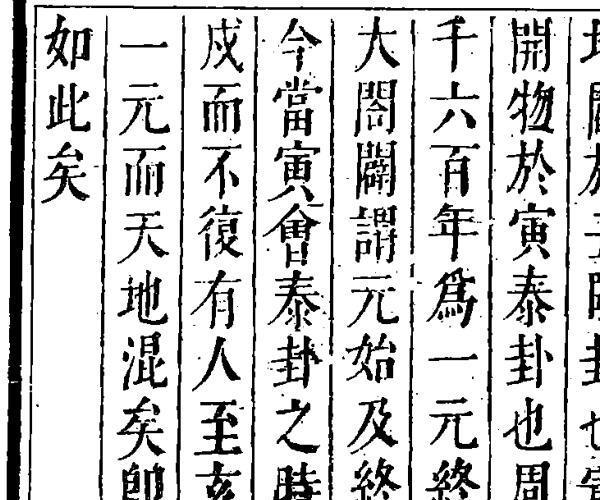 於
開物於寅泰卦也周
千六百年為一元終
大閤闢謂元始及終
今當寅會泰卦之時
戍而不復有人至亥
一元而天地混矣卽
如此矣